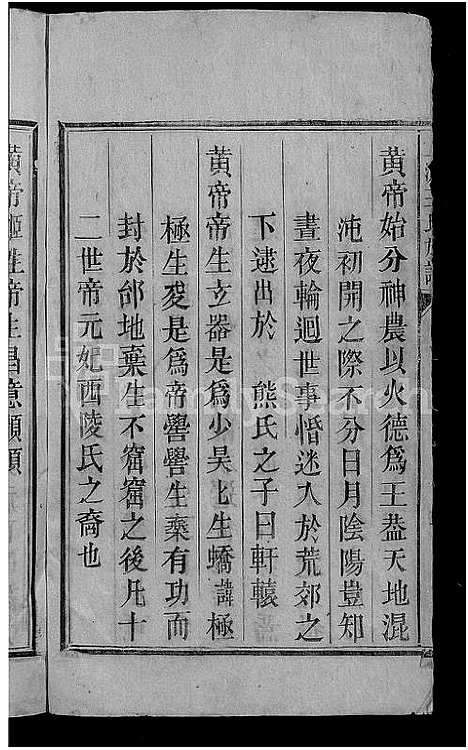 黄帝始分神農以火德爲王盖天地混
沌初開之際不分日月陰陽豈知
晝夜輪迴世事惛迷人於荒郊之
下逮出於 熊氏之子曰軒轅
黄帝帝生玄器是爲少昊昊生蟜諱極
極生夋是爲帝嚳嚳生棄有功而
封於邰地棄生不窋窋之後凡十
二世帝元妃西陵氏之裔也
黄帝姬姓帝生昌意顓頊
FamilySearch